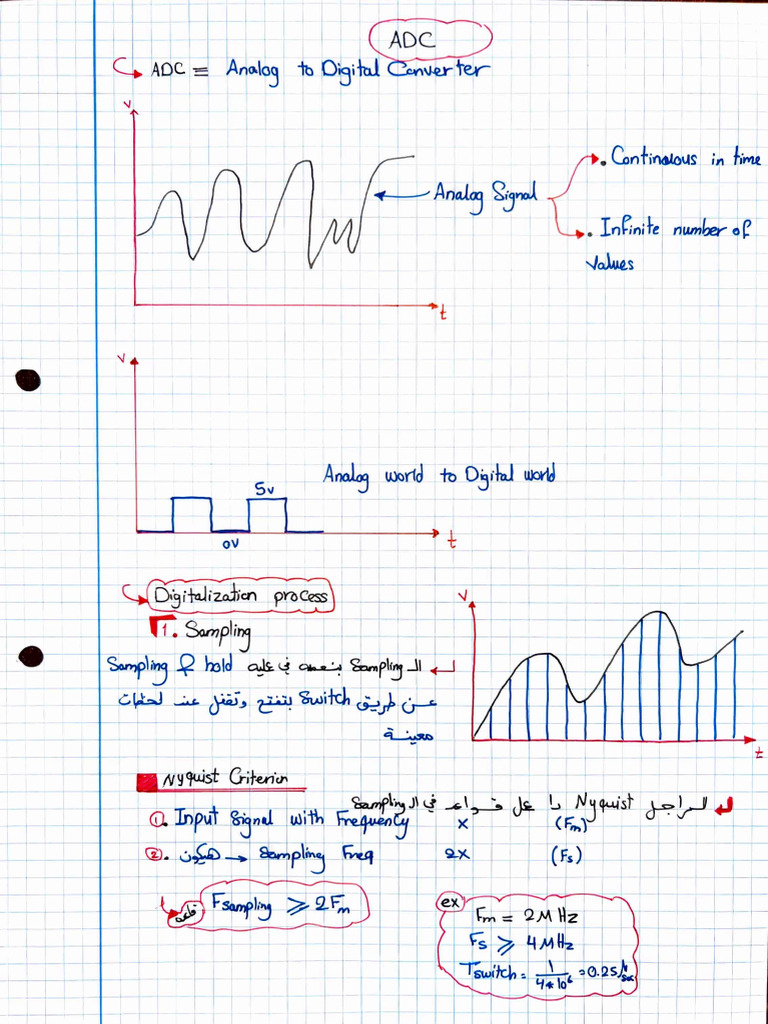 ADC
ADC ≡ Analog to Digital Converter
V
Analog Signal
• Continouous in time
• Infinite number of
values
t
V
Analog world to Digital world
5v
0v
t
Digitalization process
1. Sampling
الـ Sampling بنعمله في عملية Sampling & hold
عن طريق Switch بتفتح وتقفل عند لحظات
معينة
V
t
Nyquist Criterion
الراجل Nyquist دا عمل قواعد في الـ Sampling
1. Input Signal with Frequency x (Fm)
2. هيكون → Sampling Freq 2x (Fs)
قاعدة Fsampling ⩾ 2Fm
ex
Fm = 2MHz
Fs ⩾ 4MHz
Tswitch = 1/4*10⁶ = 0.25 μ sec